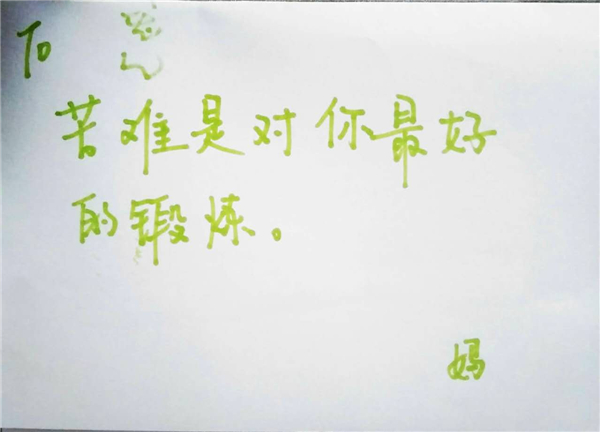 To
苦难是对你最好
的锻炼。
妈